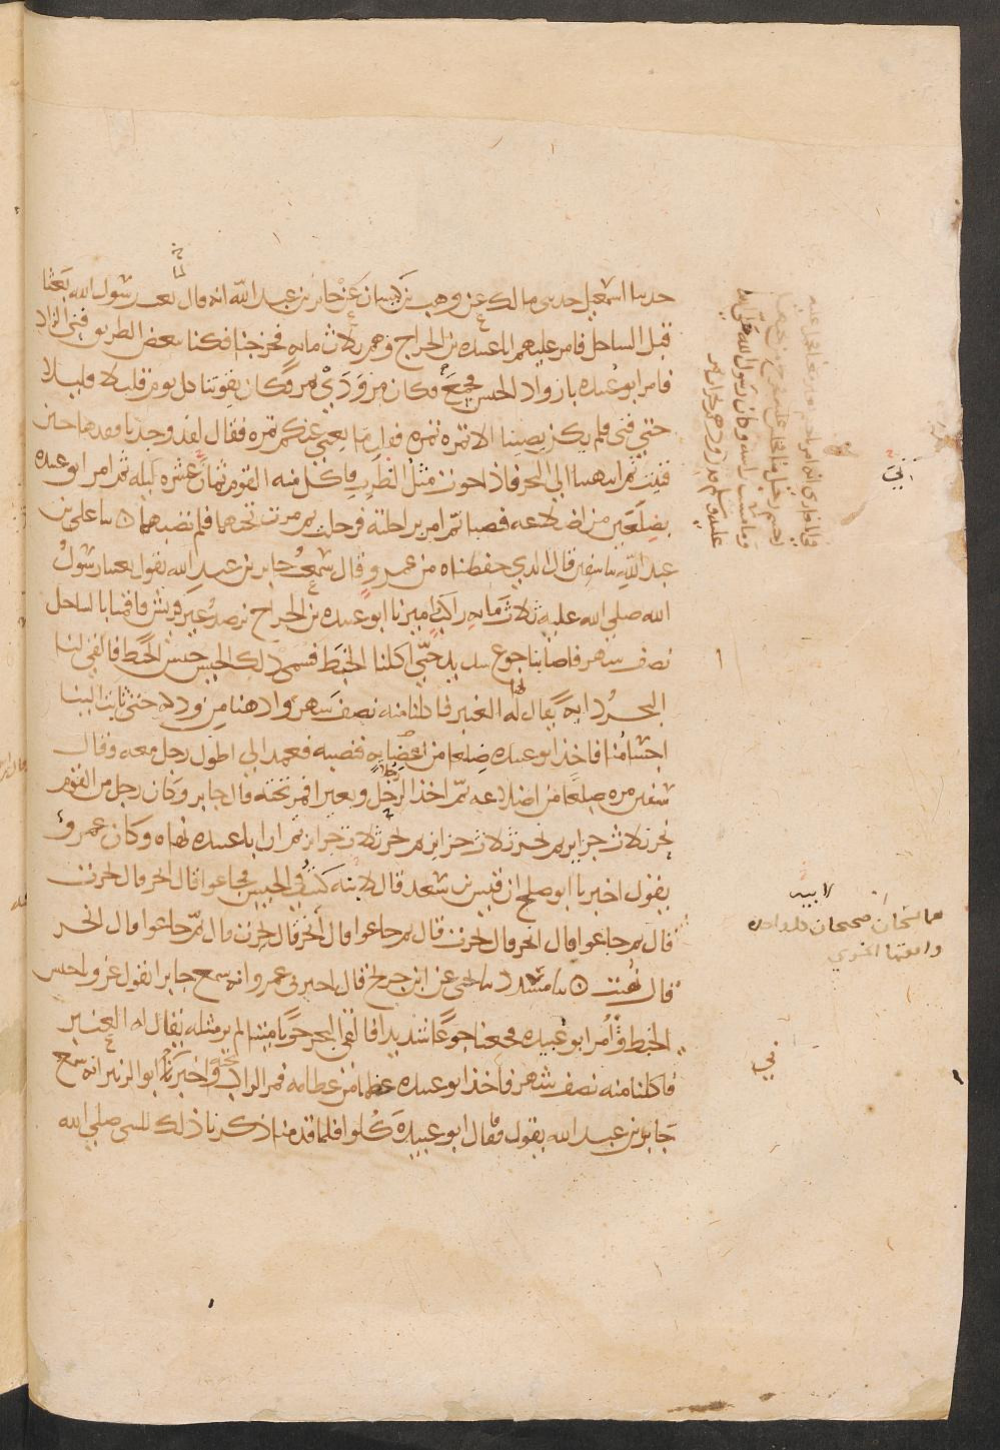 حدثنا اسمعيل حدثني مالك عن وهب بن كيسان عن جابر بن عبد الله انه قال لما بعث رسول الله بعثا
قبل الساحل فامر عليهم ابا عبيده بن الجراح وهم ثلاث مايه فخرجنا فكنا ببعض الطريق فني الزاد
فامر ابو عبيده بازواد الجيش فجمع فكان مزودي تمر فكان يقوتنا كل يوم قليلا قليلا
حتى فني فلم يكن يصيبنا الا تمره تمره فقلت ما يغني عنكم تمره فقال لقد وجدنا فقدها حين
فنيت ثم انتهينا الى البحر فاذا حوت مثل الظرب فاكل منه القوم ثمان عشره ليله ثم امر ابو عبيده
بضلعين من اضلاعه فنصبا ثم امر براحلة فرحلت ثم مرت تحتهما فلم تصبهما ۞ ثنا علي بن
عبد الله ثنا سفين قال الذي حفظناه من عمرو قال سمعت جابر بن عبد الله يقول بعثنا رسول
الله صلى الله عليه ثلاث مايه راكبا اميرنا ابو عبيده بن الجراح نرصد عير قريش فاقمنا بالساحل
نصف شهر فاصابنا جوع شديد حتى اكلنا الخبط فسمي ذلك الجيش جيش الخبط فالقى لنا
البحر دابة يقال لها العنبر فاكلنا منه نصف شهر وادهنا من ودكه حتى ثابت الينا
اجسامنا فاخذ ابو عبيده ضلعا من اعضايه فنصبه فعمد الى اطول رجل معه وقال
سفين مره ضلعا من اضلاعه ثم اخذ الرحل وبعيرا فمر تحته قال جابر وكان رجل من القوم
نحر ثلاث جزاير ثم نحر ثلاث جزاير ثم نحر ثلاث جزاير ثم ان ابا عبيده نهاه وكان عمرو
يقول اخبرنا ابو صلح ان قيس بن سعد قال لابيه كنت في الجيش فجاعوا قال انحر قال نحرت
قال ثم جاعوا قال انحر قال نحرت قال ثم جاعوا قال انحر قال نحرت قال ثم جاعوا قال انحر
قال نهيت ۞ ثنا مسدد ثنا يحيى عن ابن جريج قال اخبرني عمرو انه سمع جابرا يقول غزونا جيش
الخبط وامر ابو عبيده فجعنا جوعا شديدا فالقى البحر حوتا ميتا لم نر مثله يقال له العنبر
فاكلنا منه نصف شهر فاخذ ابو عبيده عظما من عظامه فمر الراكب تحته واخبرنا ابو الزبير انه سمع
جابر بن عبد الله يقول فقال ابو عبيده كلوا فلما قدمنا ذكرنا ذلك للنبي صلى الله